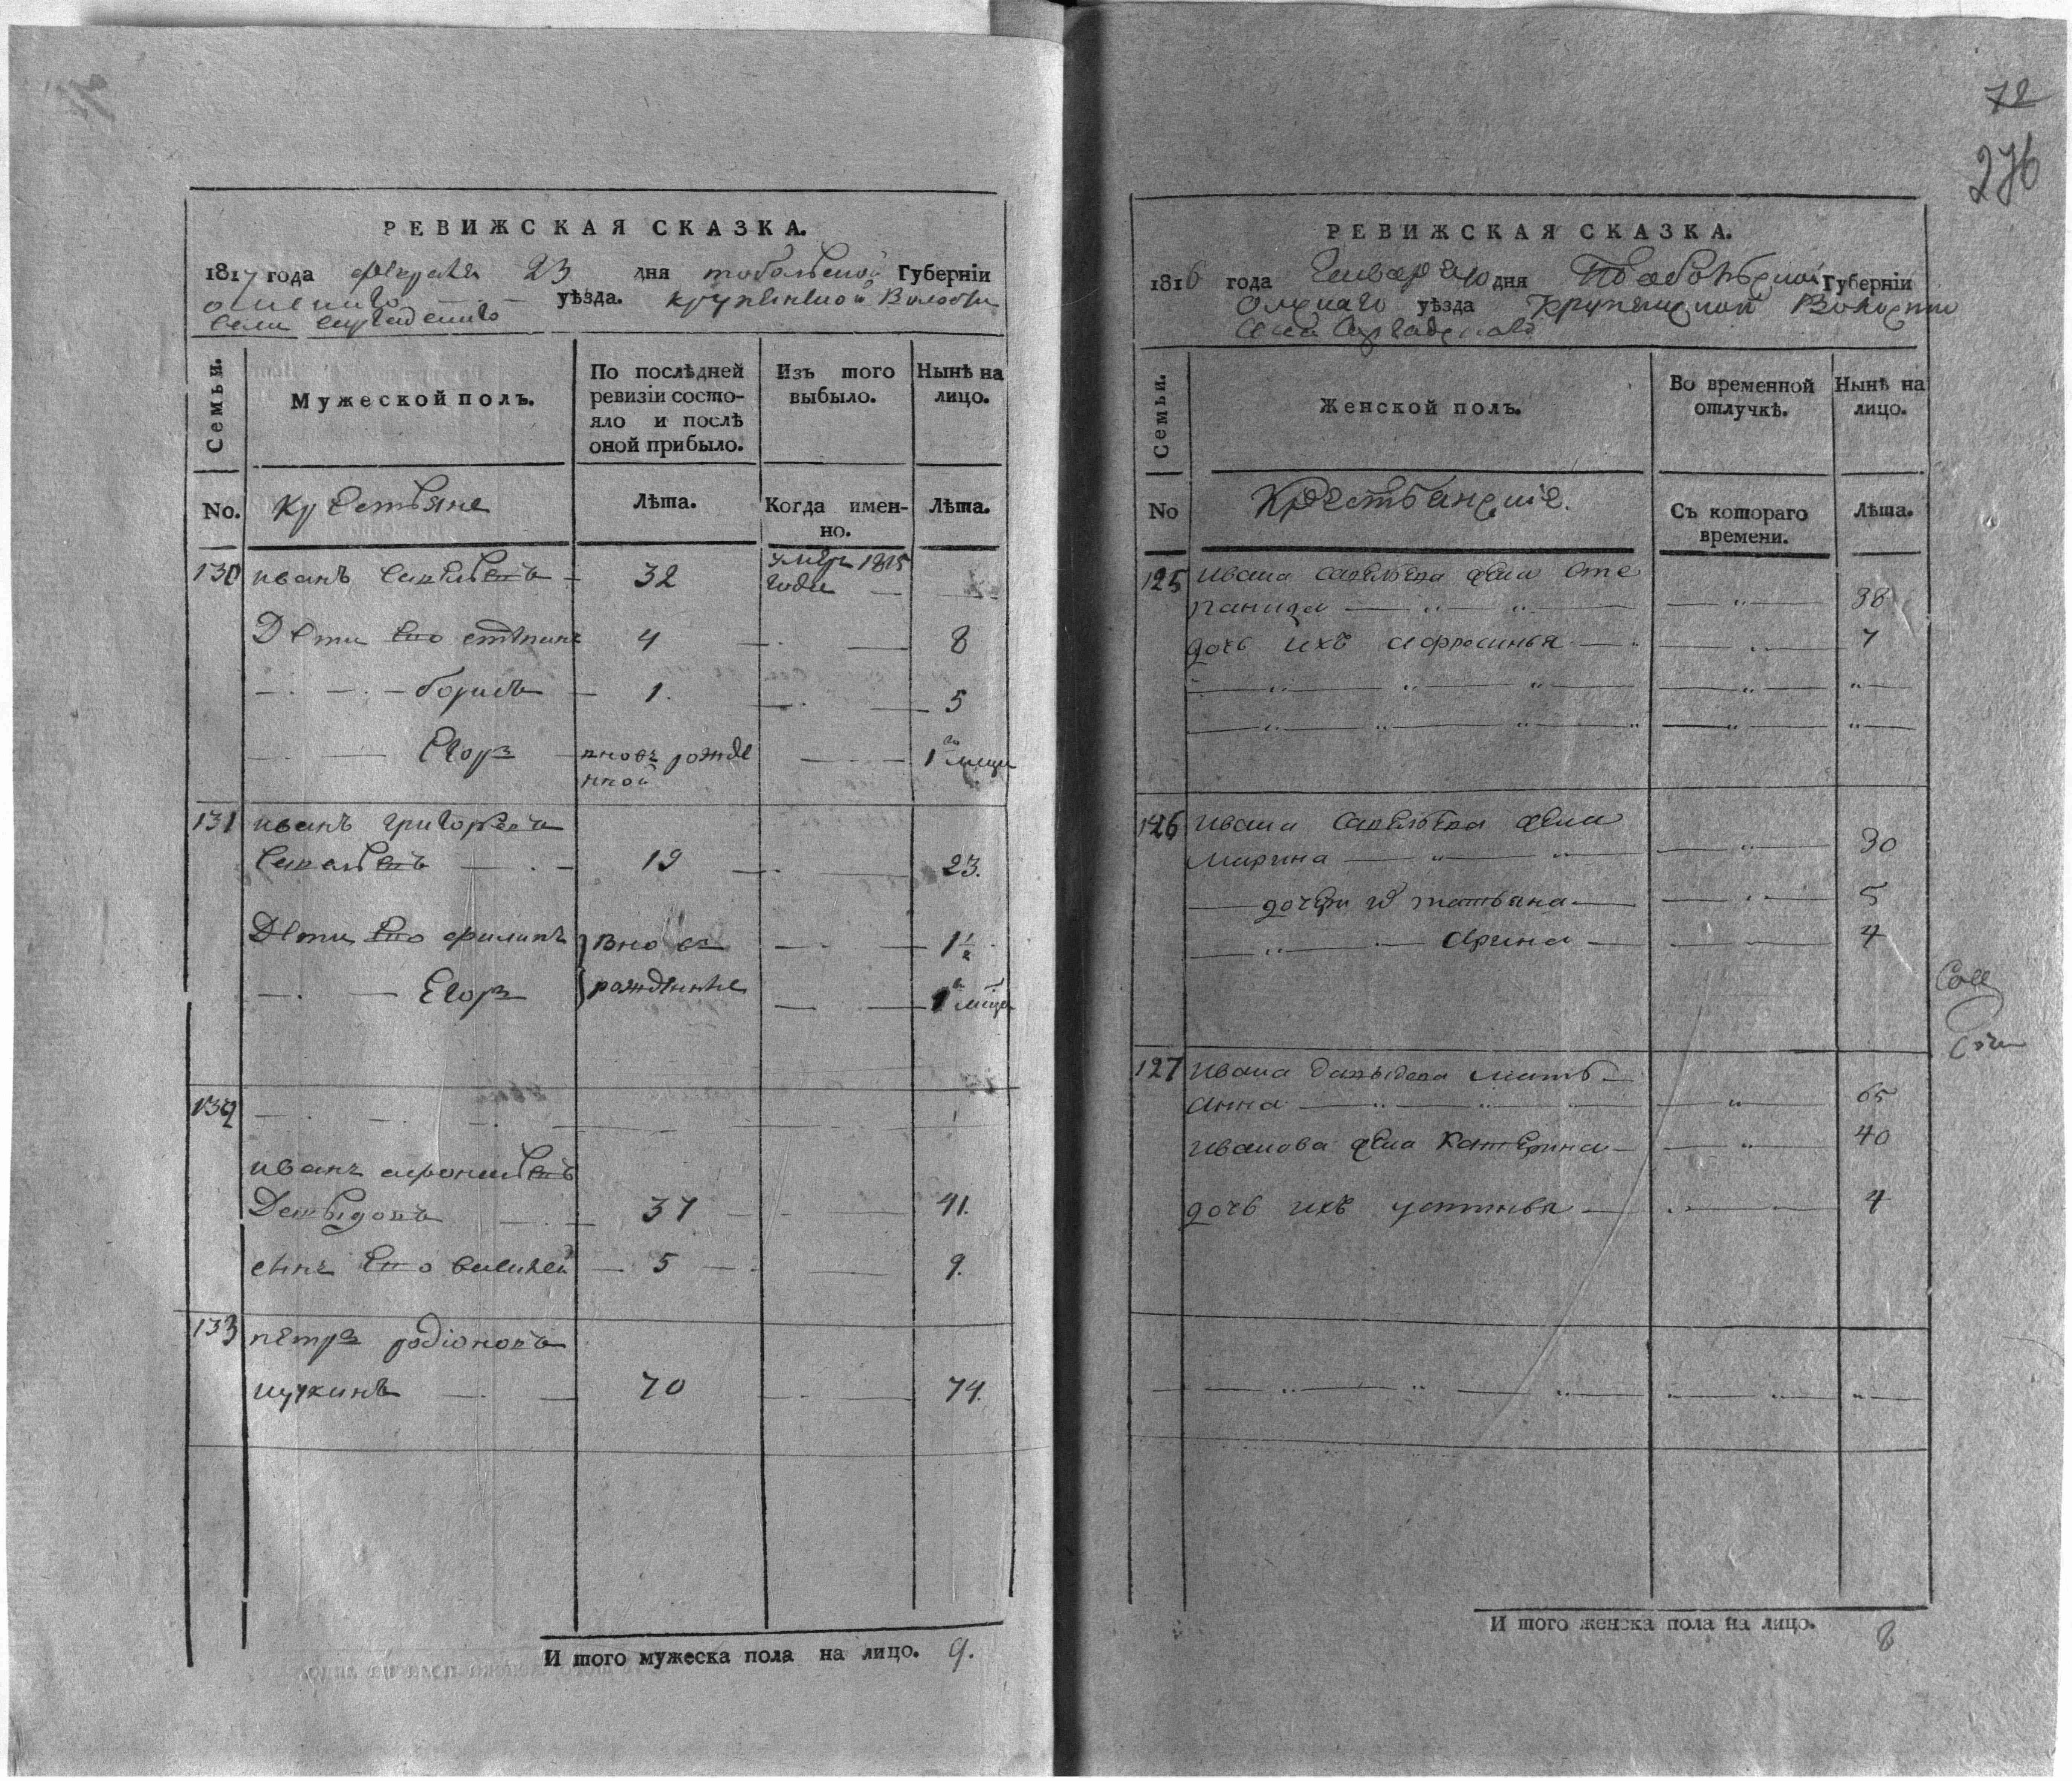 72
276
РЕВИЖСКАЯ СКАЗКА.
1817 года февраля 23 дня тобольской Губерніи
омского уѣзда. крупенской Волости
села сыргацкаго
Семьи.
Мужеской полъ.
По послѣдней ревизіи состо-
яло и послѣ
оной прибыло.
Изъ того выбыло.
Нынѣ на лицо.
No.
крестьяне
Лѣта.
Когда имен-
но.
Лѣта.
130 иванъ савельевъ 32 умеръ 1815
годе
Дети ево степанъ 4 8
борисъ 1. 5
Егоръ вновь рожде
нной 1 месца
131 иванъ григорьевъ
савельевъ 19 23.
Дети ево филипъ вновь 1½
Егоръ рожденные 1 месца
132
иванъ афонасьевъ
Давыдовъ 37 41.
сынъ ево василей 5 9.
133 петръ родіоновъ
щукинъ 70 74.
И того мужеска пола на лицо. 9.
РЕВИЖСКАЯ СКАЗКА.
1816 года Генваря 10 дня Тобольской Губерніи
Омскаго уѣзда Крупенской Волости
Села
Семьи.
Женской полъ.
Во временной
отлучкѣ.
Нынѣ на
лицо.
No
Крестьянские.
Съ котораго
времени.
Лѣта.
125 Ивана савельева жена Сте
панида 38
дочь ихъ афросинья 7
126 Ивана савельева жена
Марина 30
дочери их татьяна 5
Арина 4
127 Ивана давыдова мать
Анна 65
Иванова жена Катерина 40
дочь ихъ устинья 4
И того женска пола на лицо. 8